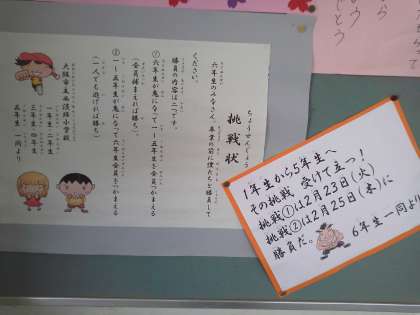 ちょうせんじょう
挑戦状
六年生のみなさん、卒業の前に僕たちと勝負して
ください。
勝負の内容は二つです。
①六年生が鬼になって一~五年生を全員つかまえる
(全員捕まえれば勝ち)
②一~五年生が鬼になって六年生全員をつかまえる
(一人でも逃げれば勝ち)
一年生 二年生
三年生 四年生
五年生 一同より
1年生から5年生へ
その挑戦 受けて立つ!
挑戦①は2月23日(火)
挑戦②は2月25日(木)に
勝負だ。
6年生一同より